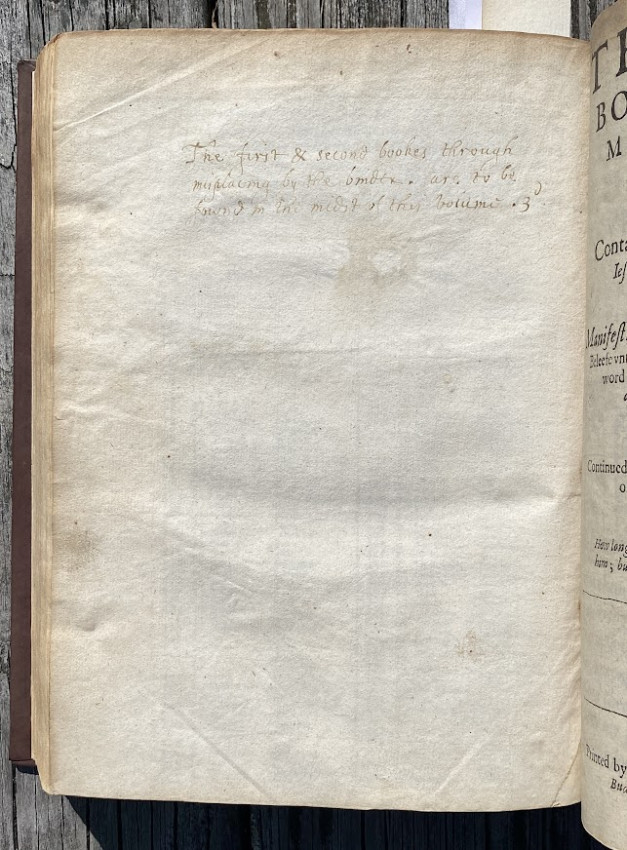 The first & second bookes through
misplacing by the binder. are. to be
found in the midst of this volume. 3
BO
M
Conta
Ies
Manifest
Beleefe vnt
word
Continued
o
Here long
him; bu
Printed by